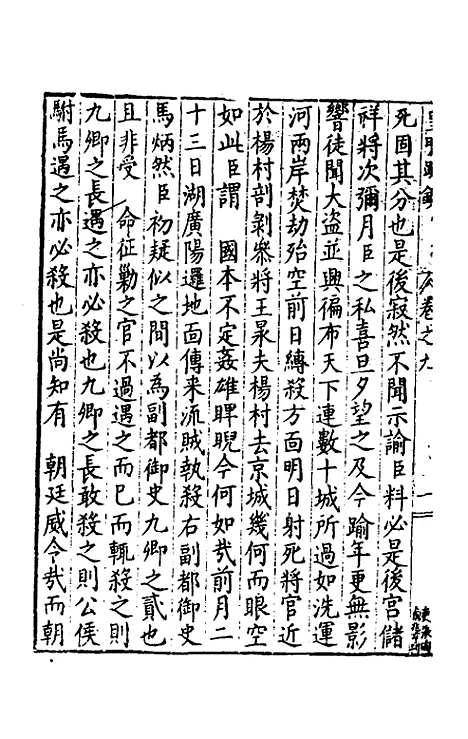 卷之九
死固其分也是後寂然不聞示諭臣料必是後宮儲
祥將次彌月臣之私喜旦夕望之及今踰年更無影
響徒聞大盜並興徧布天下連數十城所過如洗運
河兩岸焚劫殆空前日縛殺方面明日射死將官近
於楊村剖剝叅將王杲夫楊村去京城幾何而眼空
如此臣謂 國本不定姦雄睥睨今何如哉前月二
十三日湖廣陽邏地面傳来流賊執殺右副都御史
馬炳然臣初疑似之間以為副都御史九卿之貳也
且非受 命征勦之官不過遇之而已而輒殺之則
九卿之長遇之亦必殺也九卿之長敢殺之則公侯
駙馬遇之亦必殺也是尚知有 朝廷威令哉而朝